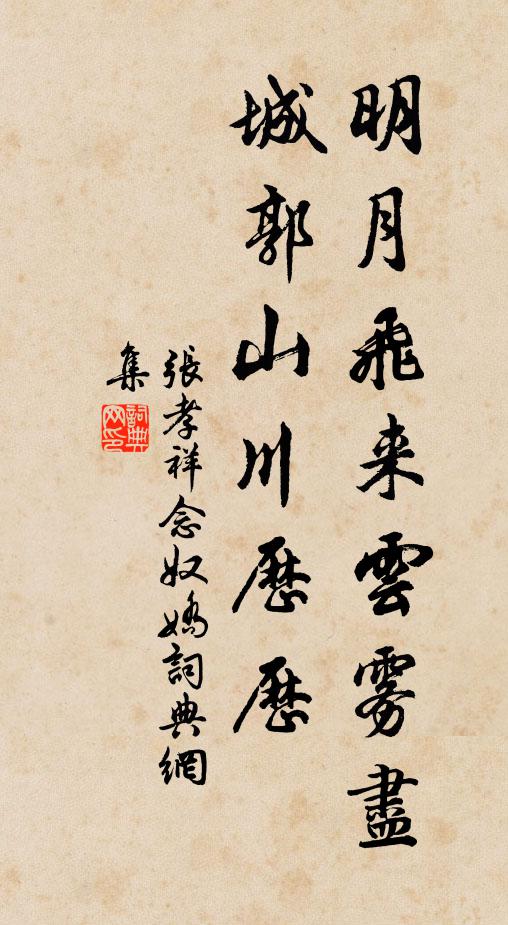 明月飛来雲雾盡
城郭山川歷歷
張孝祥念奴嬌詞典網
集
詞典网印